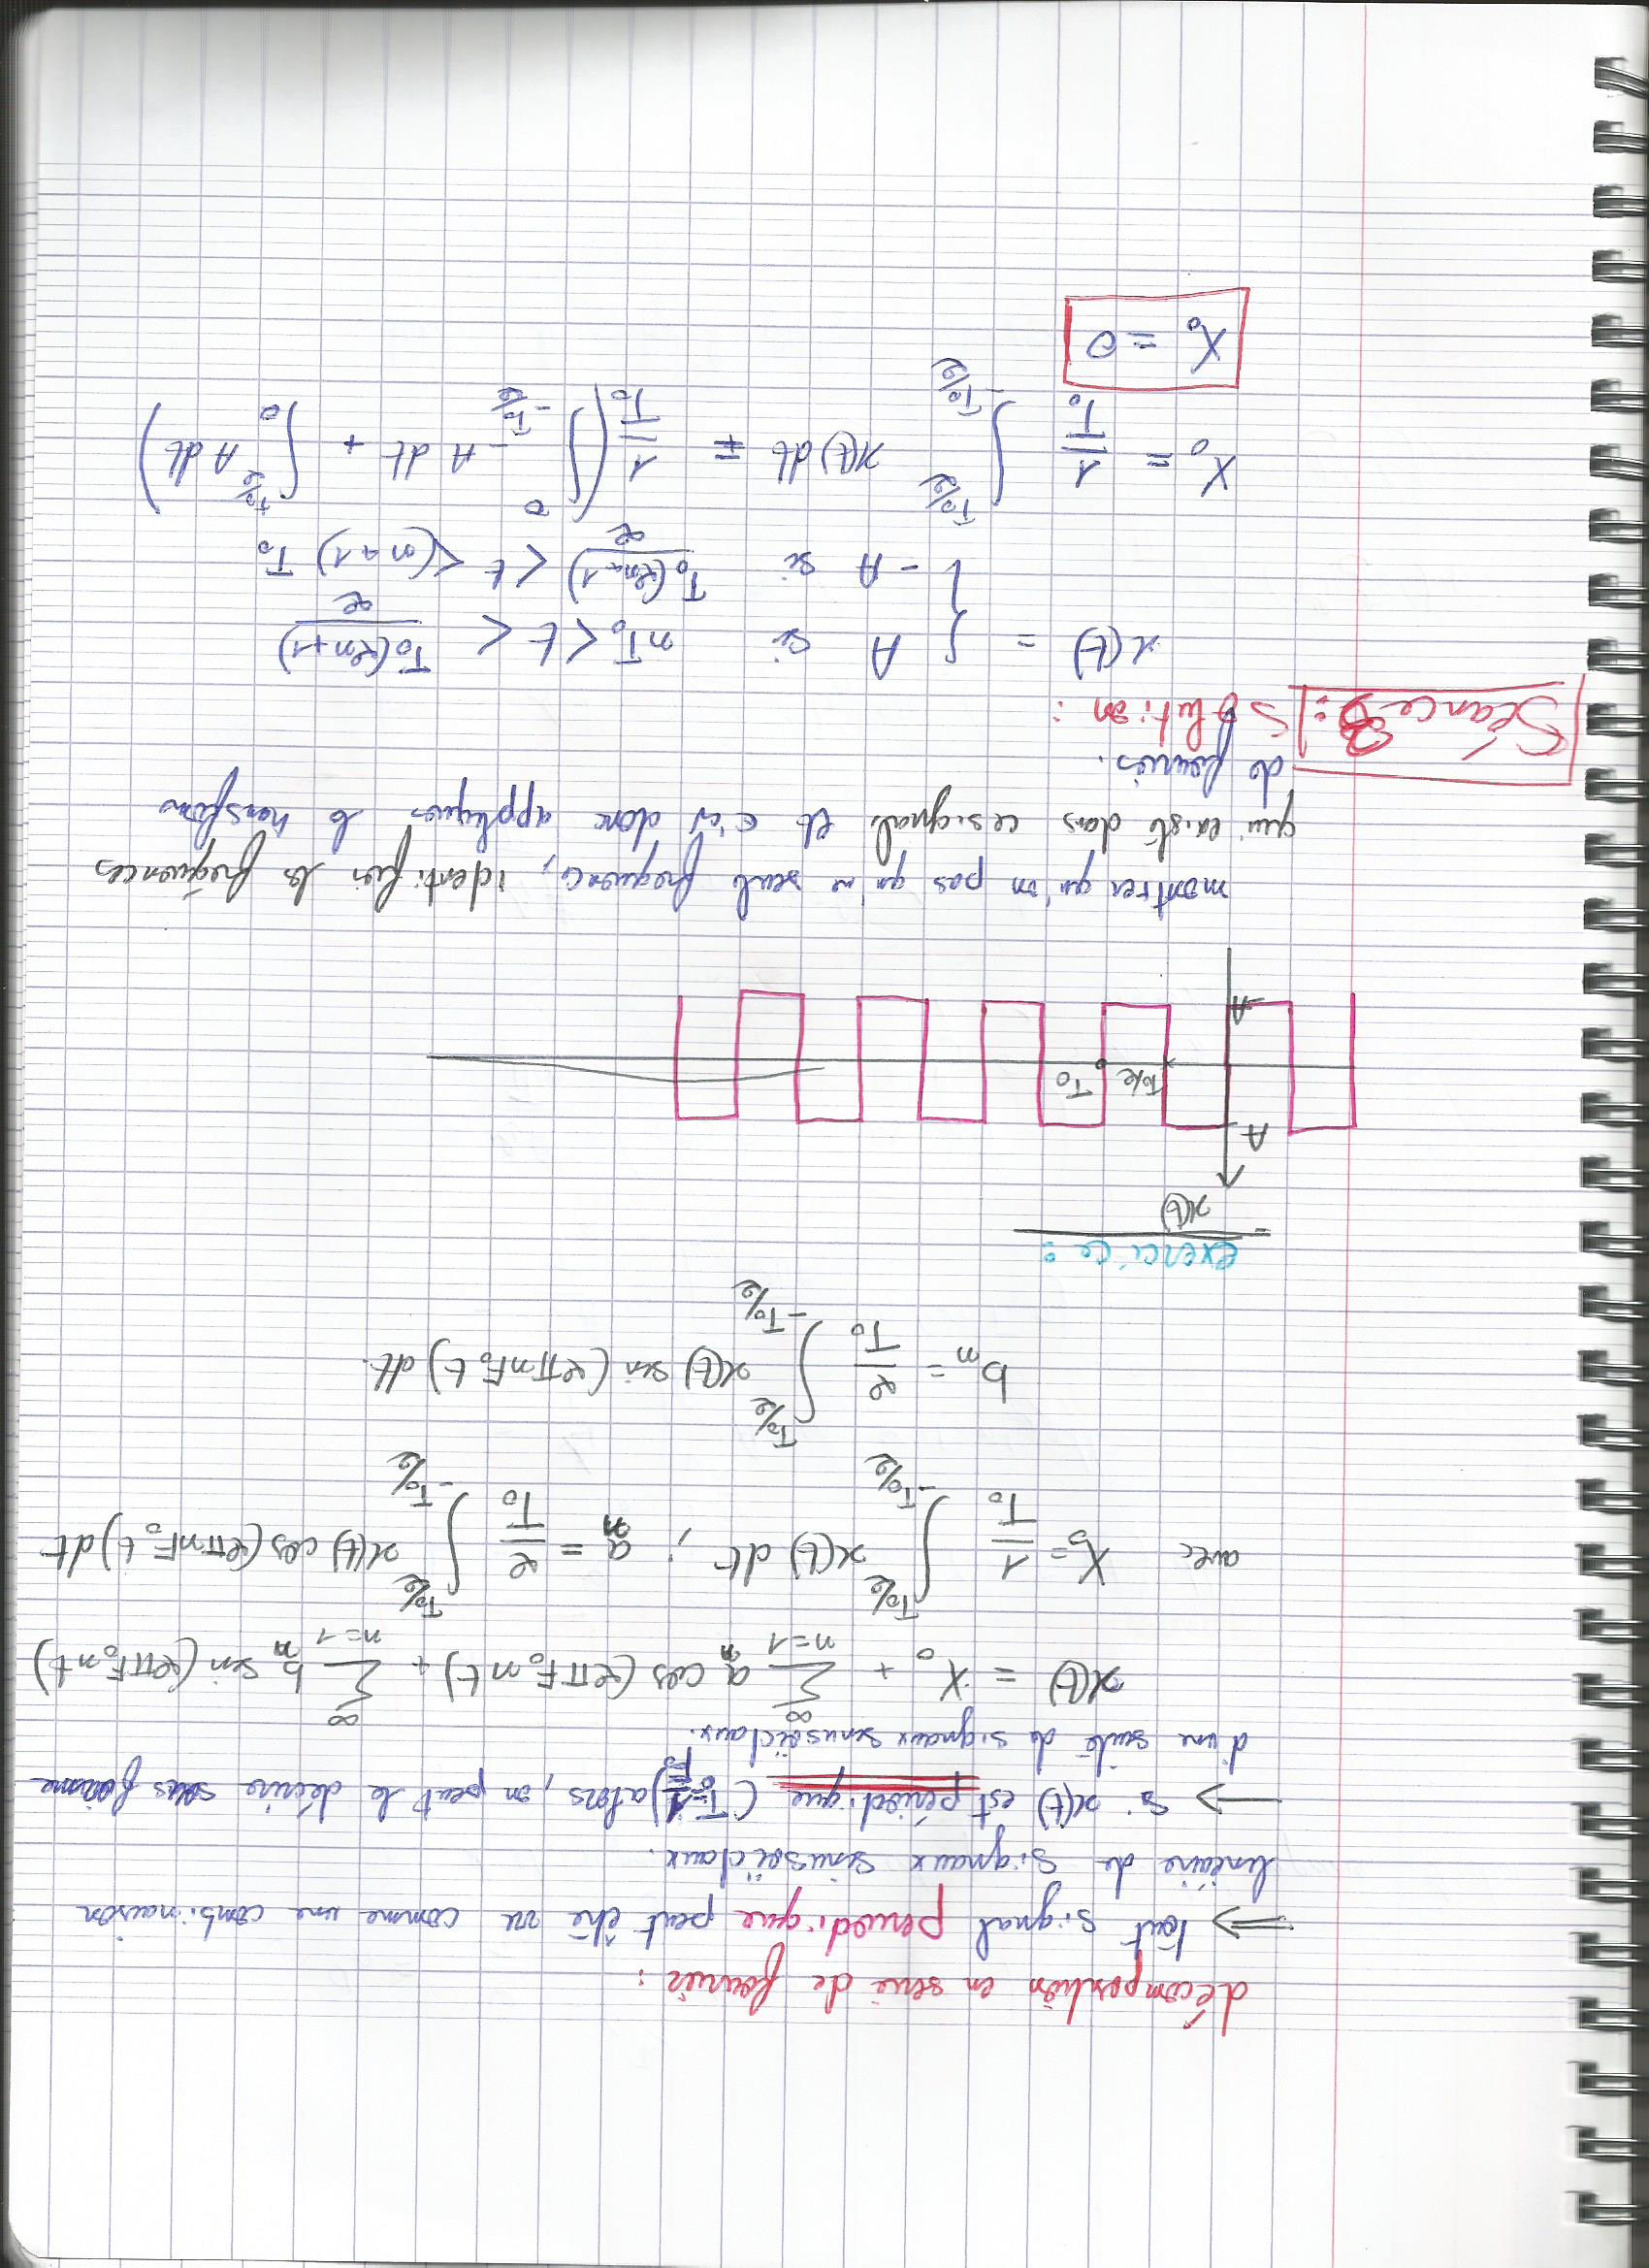 décomposition en serie de fourier :
⇒ tout signal periodique peut être vu comme une combinaison
linéaire de signaux sinusoïdaux.
→ si x(t) est périodique (T₀=1/F₀) alors, on peut le décrire sous forme
d'une suite de signaux sinusoïdaux.
x(t) = X₀ + ∑_{n=1}^{∞} aₙ cos(2πF₀nt) + ∑_{n=1}^{∞} bₙ sin(2πF₀nt)
avec X₀ = 1/T₀ ∫_{-T₀/2}^{T₀/2} x(t) dt ; aₙ = 2/T₀ ∫_{-T₀/2}^{T₀/2} x(t) cos(2πnF₀t) dt
bₙ = 2/T₀ ∫_{-T₀/2}^{T₀/2} x(t) sin(2πnF₀t) dt.
exercice :
x(t)
A
T₀/2 T₀
-A
montrer qu'on pas qu'une seule frequence, identifier les fréquences
qui existe dans ce signal, et c'est donc appliquer la transform
de fouries.
Séance 3 : Solution :
x(t) = { A si nT₀ < t < T₀(2n+1)/2
{ -A si T₀(2n+1)/2 < t < (n+1)T₀
X₀ = 1/T₀ ∫_{-T₀/2}^{T₀/2} x(t) dt = 1/T₀ ( ∫_{-T₀/2}^{0} -A dt + ∫_{0}^{T₀/2} A dt )
X₀ = 0